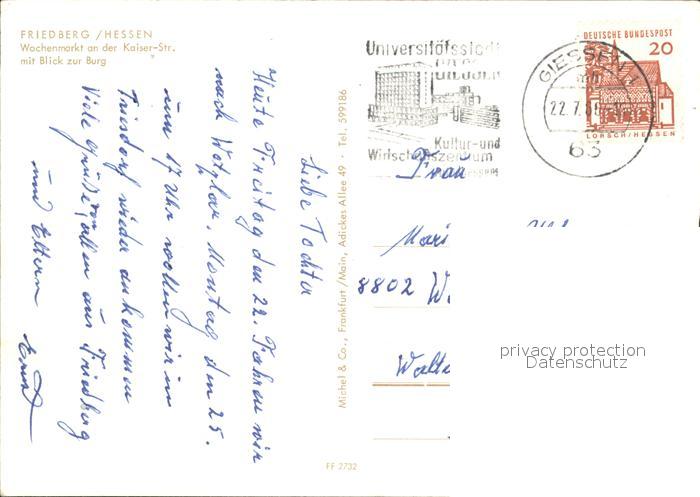 FRIEDBERG / HESSEN
Wochenmarkt an der Kaiser-Str.
mit Blick zur Burg
Liebe Tochter
Heute Freitag den 22. Fahren wir
nach Wetzlar, Montag den 25.
um 17 Uhr wollen wir in
Triesdorf wieder ankommen
Viele Grüße von allen aus Friedberg
und Eltern Ernst
Michel & Co., Frankfurt/Main, Adickes Allee 49 · Tel. 599186
FF 2732
Universitätsstadt
GIESSEN
Kultur-und
Wirtschaftszentrum
Hessens
GIESSEN 1
22.7.66
63
DEUTSCHE BUNDESPOST
20
LORSCH/HESSEN
Frau
Mari
8802 W
Walte
privacy protection
Datenschutz